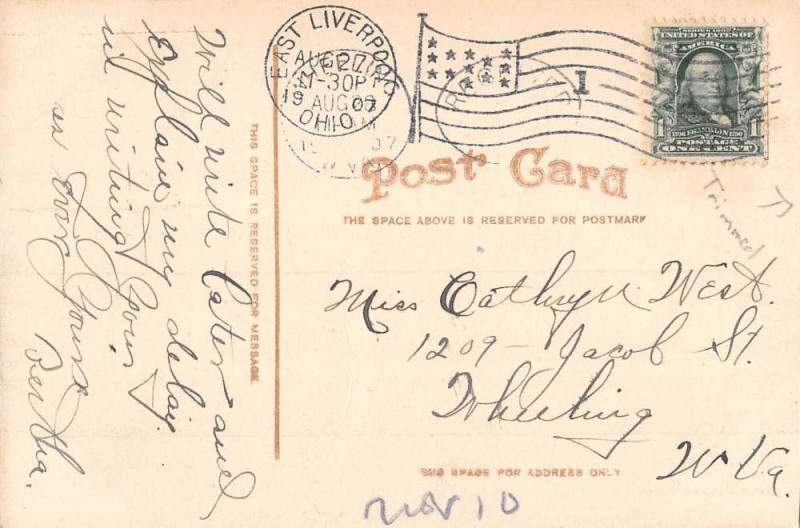 Will write Later and
Explain my delay
in writing you.
as Ever Yours
Bertha.
THIS SPACE IS RESERVED FOR MESSAGE
EAST LIVERPOOL
AUG 27
1-30P
1907
OHIO
AUG
07
W.VA
RECEIVED
1
SERIES 1902
UNITED STATES OF AMERICA
1706 FRANKLIN 1790
1 POSTAGE 1
ONE CENT
Trimmed
Post Card
THE SPACE ABOVE IS RESERVED FOR POSTMARK
Miss Cathryn West.
1209 - Jacob St.
Wheeling
W. Va.
THIS SPACE FOR ADDRESS ONLY